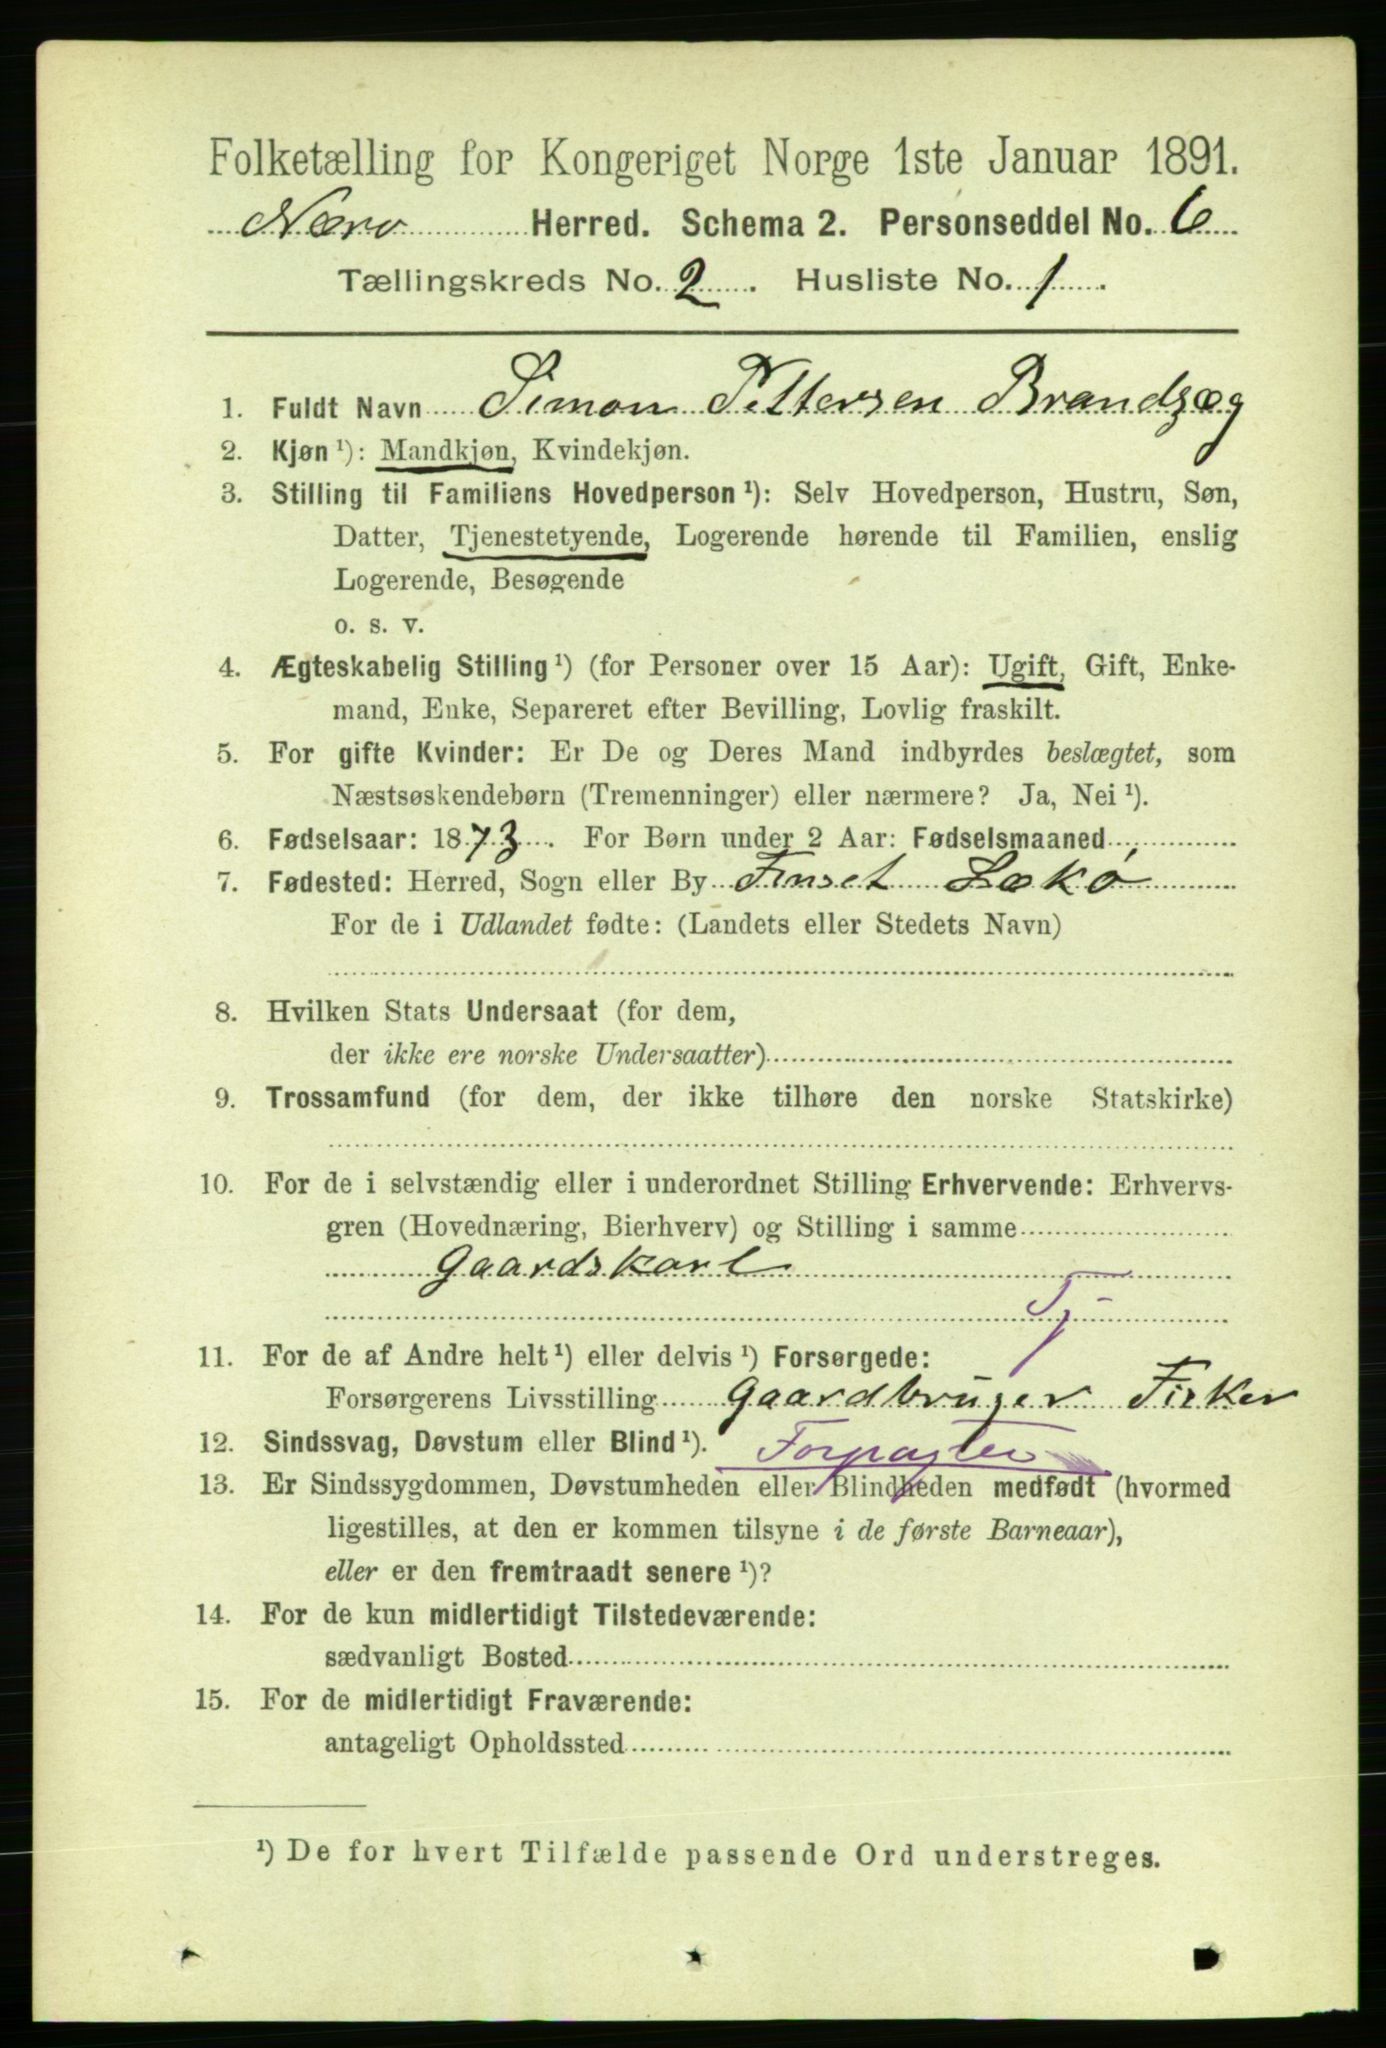 Folketælling for Kongeriget Norge 1ste Januar 1891.
Nærø Herred. Schema 2. Personseddel No. 6
Tællingskreds No. 2. Husliste No. 1.
1. Fuldt Navn Simon Pettersen Brandzæg
2. Kjøn ¹): Mandkjøn, Kvindekjøn.
3. Stilling til Familiens Hovedperson ¹): Selv Hovedperson, Hustru, Søn,
Datter, Tjenestetyende, Logerende hørende til Familien, enslig
Logerende, Besøgende
o. s. v.
4. Ægteskabelig Stilling ¹) (for Personer over 15 Aar): Ugift, Gift, Enke-
mand, Enke, Separeret efter Bevilling, Lovlig fraskilt.
5. For gifte Kvinder: Er De og Deres Mand indbyrdes beslægtet, som
Næstsøskendebørn (Tremenninger) eller nærmere? Ja, Nei ¹).
6. Fødselsaar: 1873. For Børn under 2 Aar: Fødselsmaaned
7. Fødested: Herred, Sogn eller By Finset Lækø
For de i Udlandet fødte: (Landets eller Stedets Navn)
8. Hvilken Stats Undersaat (for dem,
der ikke ere norske Undersaatter)
9. Trossamfund (for dem, der ikke tilhøre den norske Statskirke)
10. For de i selvstændig eller i underordnet Stilling Erhvervende: Erhvervs-
gren (Hovednæring, Bierhverv) og Stilling i samme
Gaardskarl
Tj
11. For de af Andre helt ¹) eller delvis ¹) Forsørgede:
Forsørgerens Livsstilling Gaardbruger Fisker
12. Sindssvag, Døvstum eller Blind ¹). Forpagter
13. Er Sindssygdommen, Døvstumheden eller Blindheden medfødt (hvormed
ligestilles, at den er kommen tilsyne i de første Barneaar),
eller er den fremtraadt senere ¹)?
14. For de kun midlertidigt Tilstedeværende:
sædvanligt Bosted
15. For de midlertidigt Fraværende:
antageligt Opholdssted
¹) De for hvert Tilfælde passende Ord understreges.